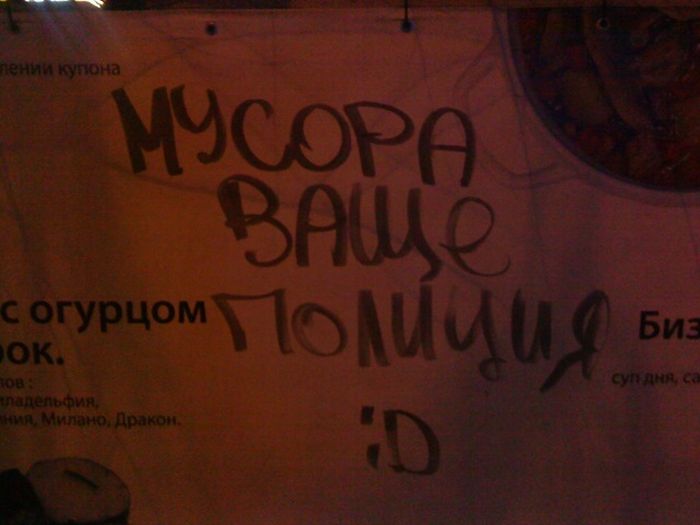 лении купона
МУСОРА
ВАЩе
ПОЛИЦИЯ
:D
с огурцом
рок.
лов :
иладельфия,
ния, Милано, Дракон.
Биз
суп дня, са